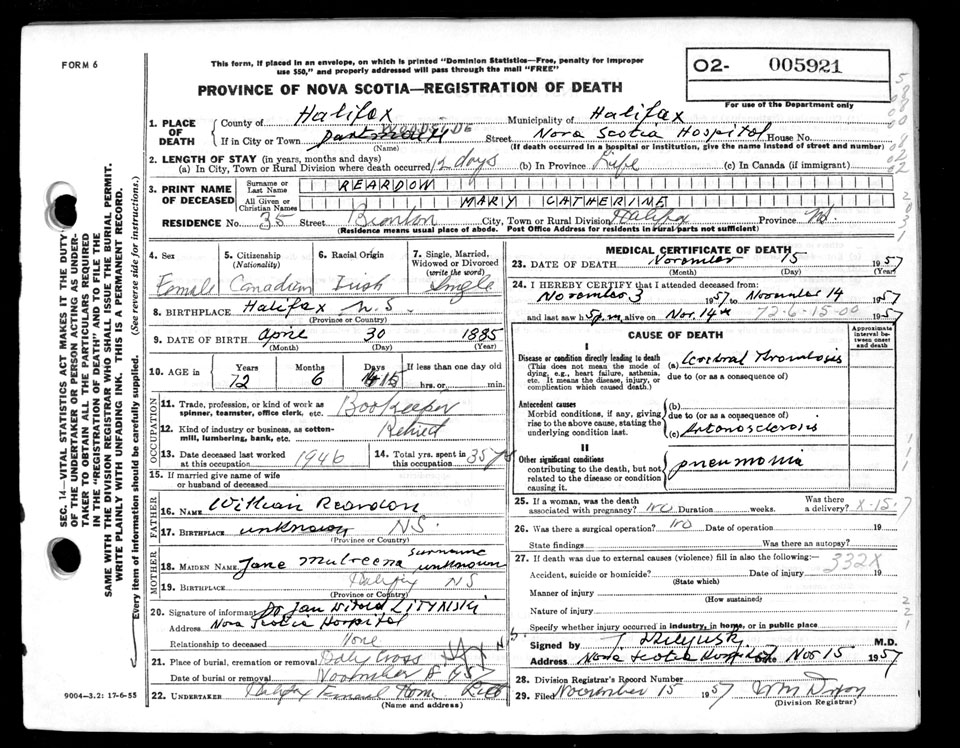 FORM 6
This form, if placed in an envelope, on which is printed "Dominion Statistics—Free, penalty for improper
use $50," and properly addressed will pass through the mail "FREE"
02- 005921
For use of the Department only
PROVINCE OF NOVA SCOTIA—REGISTRATION OF DEATH
1. PLACE OF DEATH
County of Halifax Municipality of Halifax
If in City or Town Dartmouth WOODSIDE Street Nova Scotia Hospital House No.
(Name) (If death occurred in a hospital or institution, give the name instead of street and number)
2. LENGTH OF STAY (in years, months and days)
(a) In City, Town or Rural Division where death occurred 12 days (b) In Province Life (c) In Canada (if immigrant)
3. PRINT NAME OF DECEASED
Surname or Last Name REARDON
All Given or Christian Names MARY CATHERINE
RESIDENCE No. 35 Street City, Town or Rural Division Halifax Province NS
(Residence means usual place of abode. Post Office Address for residents in rural parts not sufficient)
4. Sex
Female
5. Citizenship (Nationality)
Canadian
6. Racial Origin
Irish
7. Single, Married, Widowed or Divorced (write the word)
Single
8. BIRTHPLACE Halifax N.S.
(Province or Country)
9. DATE OF BIRTH April 30 1885
(Month) (Day) (Year)
10. AGE in Years Months Days If less than one day old
72 6 15 hrs. or min.
OCCUPATION
11. Trade, profession, or kind of work as spinner, teamster, office clerk, etc. Bookeeper
12. Kind of industry or business, as cotton-mill, lumbering, bank, etc. Retired
13. Date deceased last worked at this occupation 1946
14. Total yrs. spent in this occupation 35 yrs
15. If married give name of wife or husband of deceased
FATHER
16. NAME William Reardon
17. BIRTHPLACE unknown NS.
(Province or Country)
MOTHER
18. MAIDEN NAME Jane surname unknown
19. BIRTHPLACE Halifax NS
(Province or Country)
20. Signature of informant Dr Jan Witold LITYNSKI
Address Nova Scotia Hospital
Relationship to deceased None
21. Place of burial, cremation or removal Holy Cross
Date of burial or removal November
22. UNDERTAKER Halifax Funeral Home
(Name and address)
MEDICAL CERTIFICATE OF DEATH
23. DATE OF DEATH November 15 1957
(Month) (Day) (Year)
24. I HEREBY CERTIFY that I attended deceased from:
November 3 1957 to November 14 1957
and last saw h alive on Nov. 14 1957
72-6-15-00
CAUSE OF DEATH
Approximate interval between onset and death
I
Disease or condition directly leading to death
(This does not mean the mode of dying, e.g., heart failure, asthenia, etc. It means the disease, injury, or complication which caused death.)
(a) Cerebral Thrombosis
due to (or as a consequence of)
Antecedent causes
Morbid conditions, if any, giving rise to the above cause, stating the underlying condition last.
(b)
due to (or as a consequence of)
(c)
II
Other significant conditions
contributing to the death, but not related to the disease or condition causing it.
pneumonia
25. If a woman, was the death associated with pregnancy? NO Duration weeks. Was there a delivery? X-15-7
26. Was there a surgical operation? NO Date of operation 19
State findings Was there an autopsy?
27. If death was due to external causes (violence) fill in also the following:— 332X
Accident, suicide or homicide? Date of injury 19
(State which)
Manner of injury
(How sustained)
Nature of injury
Specify whether injury occurred in industry, in home, or in public place
Signed by M.D.
Address Nova Scotia Hospital Date Nov 15 1957
28. Division Registrar's Record Number
29. Filed November 15 1957
(Division Registrar)
9004—3.2: 17-6-55
SEC. 14—VITAL STATISTICS ACT MAKES IT THE DUTY
OF THE UNDERTAKER OR PERSON ACTING AS UNDER-
TAKER TO OBTAIN ALL THE PARTICULARS REQUIRED
IN THE "REGISTRATION OF DEATH" AND TO FILE THE
SAME WITH THE DIVISION REGISTRAR WHO SHALL ISSUE THE BURIAL PERMIT.
WRITE PLAINLY WITH UNFADING INK. THIS IS A PERMANENT RECORD.
Every item of information should be carefully supplied. (See reverse side for instructions.)